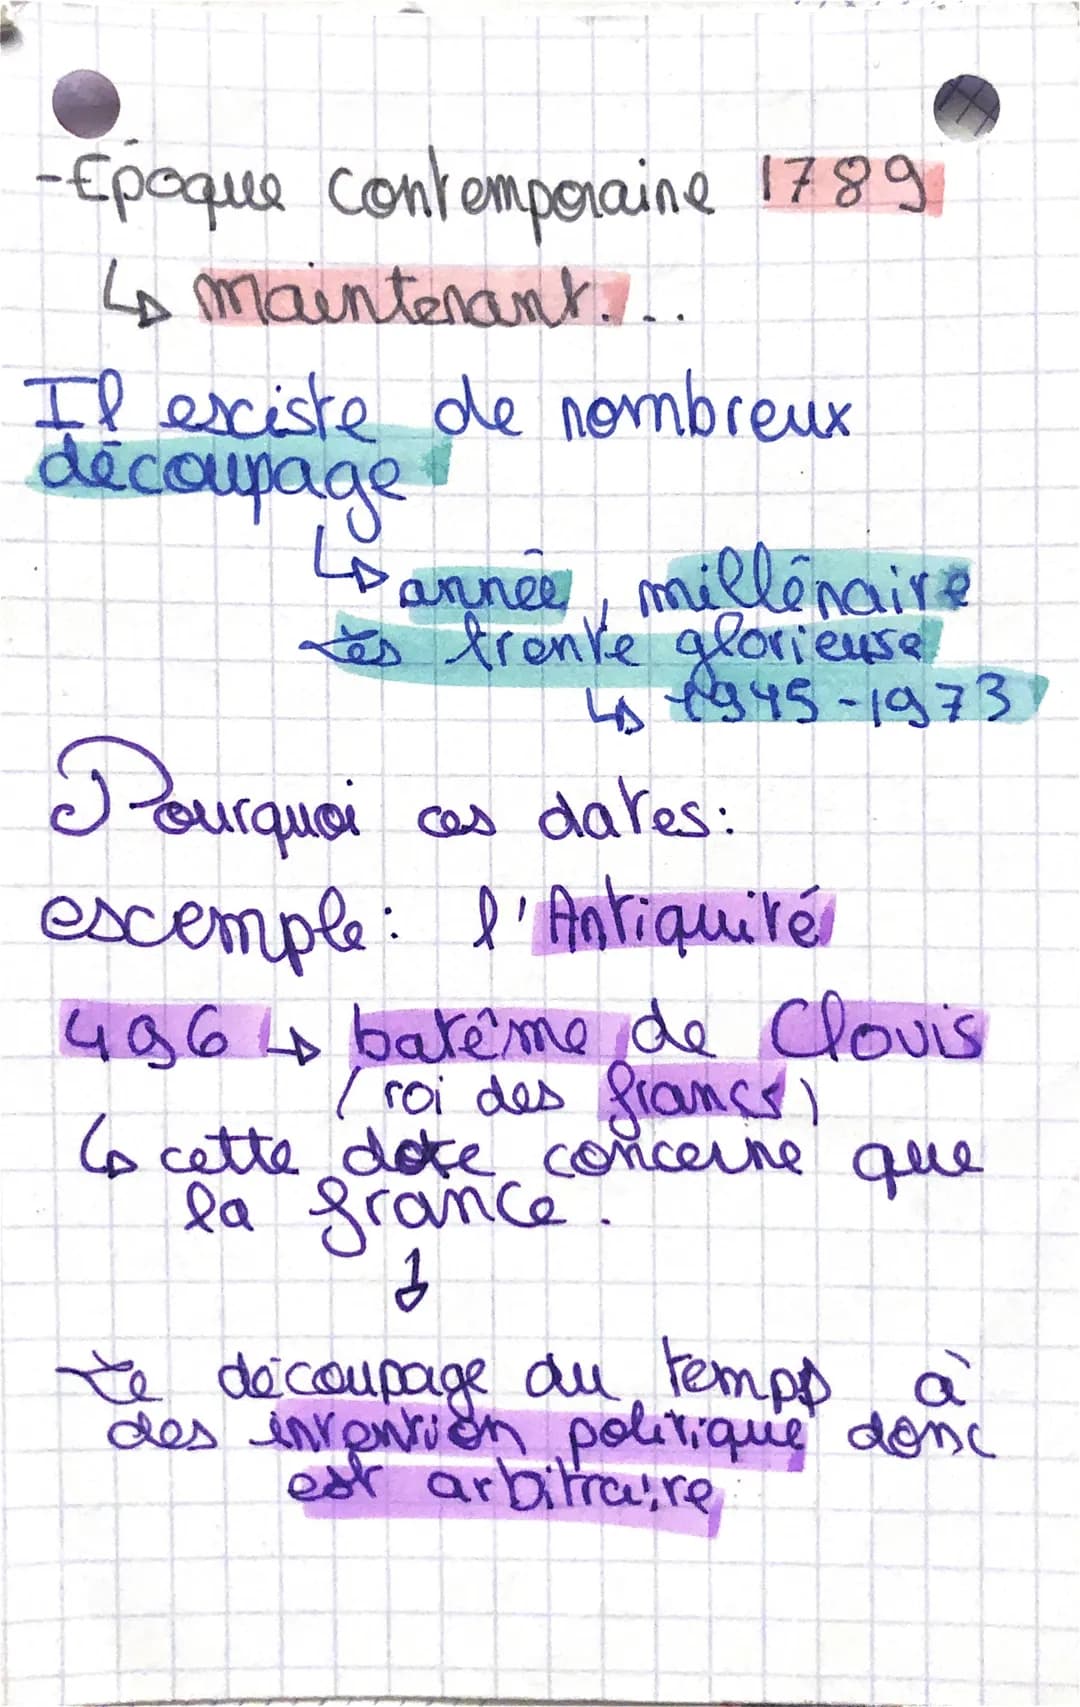 -Epoque contemporaine 1789
↳ maintenant...
Il esciste de nombreux
découpage
↳ année, millénaire
Les trente glorieuse
↳ 1945-1973
Pourquoi ces dates:
escemple: l'Antiquité
496 ↳ batême de Clovis
(roi des francs)
↳ cette date concerne que
la france.
↓
Le découpage du temps à
des intention politique donc
est arbitraire